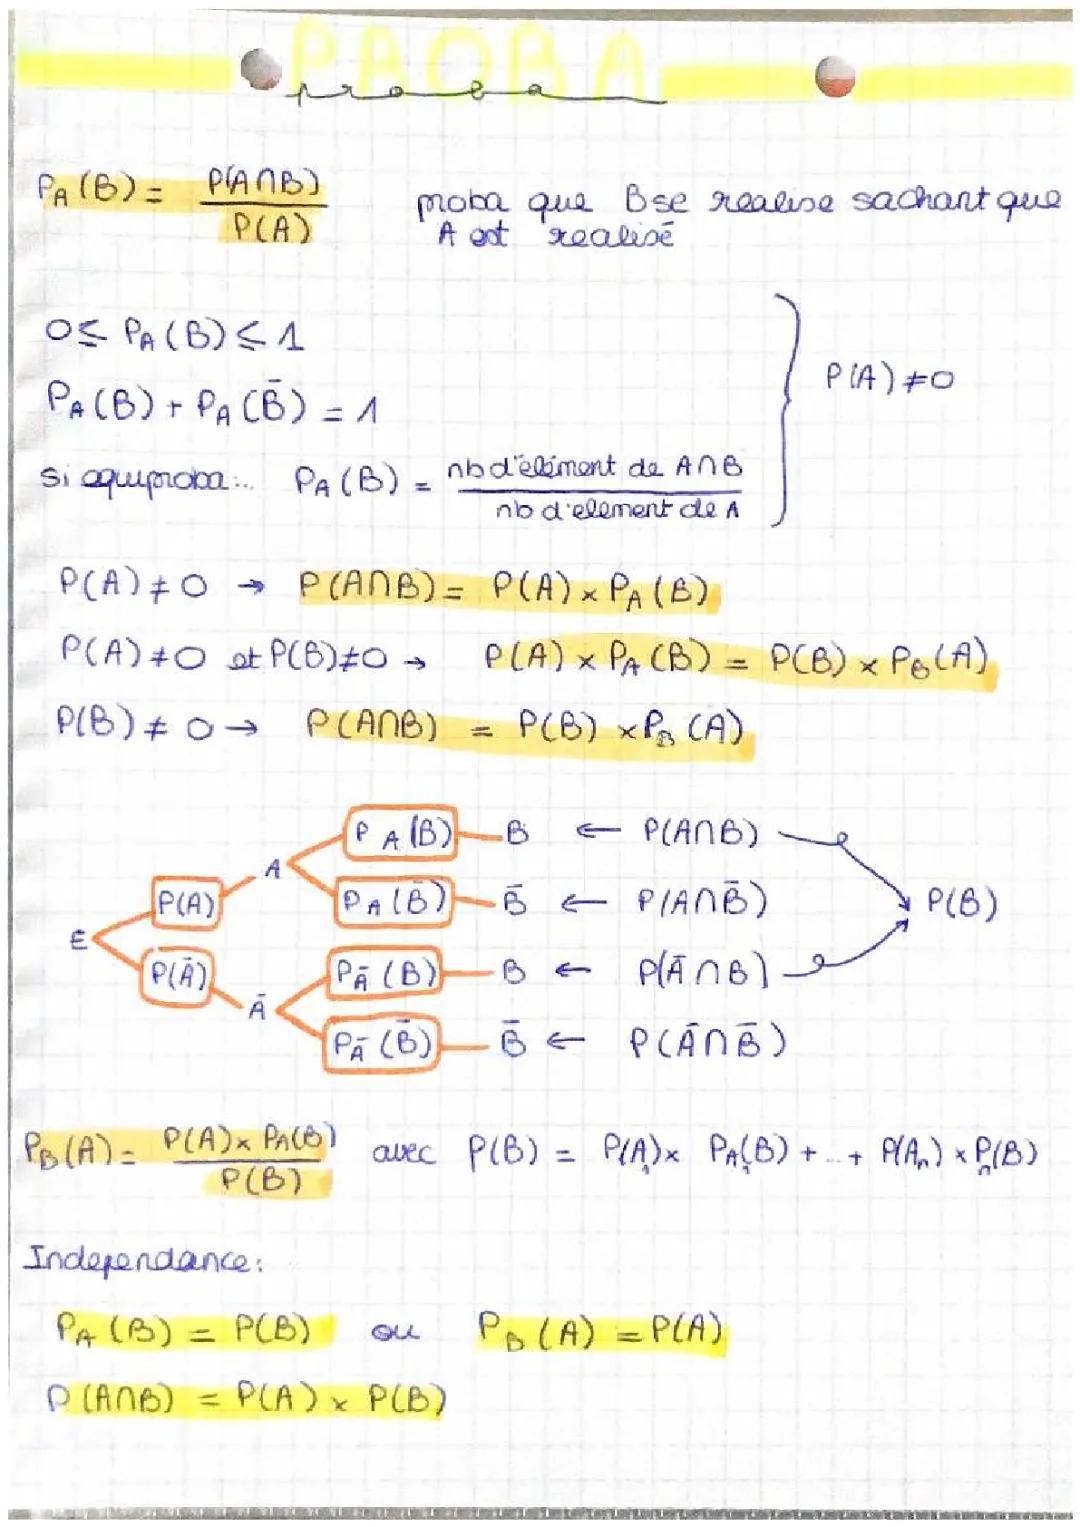 PROBA
proba
P_A(B) = P(A∩B) / P(A)
proba que B se realise sachant que
A est realisé
0 ≤ P_A(B) ≤ 1
P_A(B) + P_A(B̄) = 1
P(A) ≠ 0
si equiproba:.. P_A(B) = nb d'elément de A∩B / nb d'element de A
P(A) ≠ 0 → P(A∩B) = P(A) × P_A(B)
P(A) ≠ 0 et P(B) ≠ 0 → P(A) × P_A(B) = P(B) × P_B(A)
P(B) ≠ 0 → P(A∩B) = P(B) × P_B(A)
P_A(B) B ← P(A∩B)
A
P(A) P_A(B̄) B̄ ← P(A∩B̄) P(B)
E
P(Ā) P_Ā(B) B ← P(Ā∩B)
Ā
P_Ā(B̄) B̄ ← P(Ā∩B̄)
P_B(A) = P(A) × P_A(B) / P(B) avec P(B) = P(A₁) × P_A₁(B) + ... + P(Aₙ) × Pₙ(B)
Independance:
P_A(B) = P(B) ou P_B(A) = P(A)
P(A∩B) = P(A) × P(B)